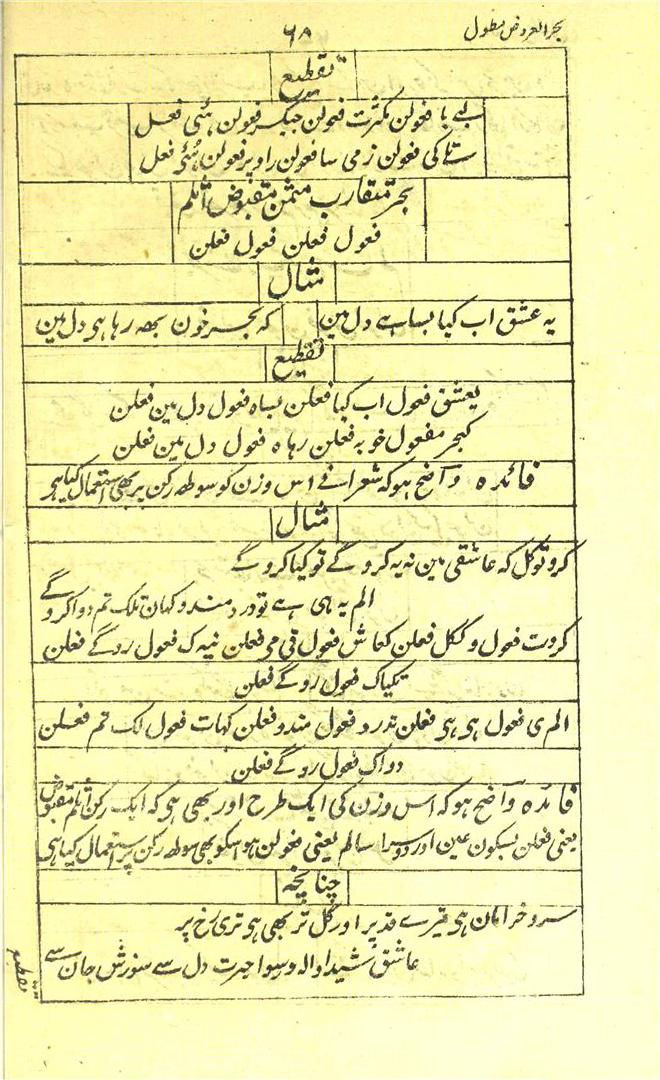 بحر العروض مطول ۶۸
تقطیع
لبے با فعولن مکثرت فعولن جبکر فعولن ہئی فعل
تاکی فعولن زمی سا فعولن راو پر فعولن ہئی فعل
بحر متقارب مثمن مقبوض اثلم
فعول فعلن فعول فعلن
مثال
یہ عشق اب کیا بسا ہے دل مین کہ بحر خون بھہ رہا ہی دل مین
تقطیع
یعشق فعول اب کیا فعلن بساہ فعول دل مین فعلن
کبحر مفعول خو بہ فعلن رہاہ فعول دل مین فعلن
فائدہ واضح ہو کہ شعرا نے اس وزن کو سولھہ رکن پر بھی استعمال کیا ہی
مثال
کرو توکل کہ عاشقی مین نہ یہ کرو گے تو کیا کرو گے
الم یہ ہی ہے تو دردمندو کہان تلک تم دوا کرو گے
کروت فعول وککل فعلن کعاش فعول قی مین فعلن نیہ ک فعول روگے فعلن
تکیاک فعول روگے فعلن
الم ی فعول ہی ہی فعلن تدرد فعول مندو فعلن کہات فعول لک تم فعلن
دواک فعول روگے فعلن
فائدہ واضح ہو کہ اس وزن کی ایک طرح اور بھی ہی کہ ایک رکن اثلم مقبوض
یعنی فعلن بسکون عین اور دوسرا سالم یعنی فعولن ہو اسکو بھی سولھہ رکن پر استعمال کیا ہی
چنانچہ
سرو خرامان ہی تیرے قد پر اور گل تر بھی ہی تری رخ پر
عاشق شیدا والہ و رسوا حیرت دل سے سوزش جان سے
تقطیع